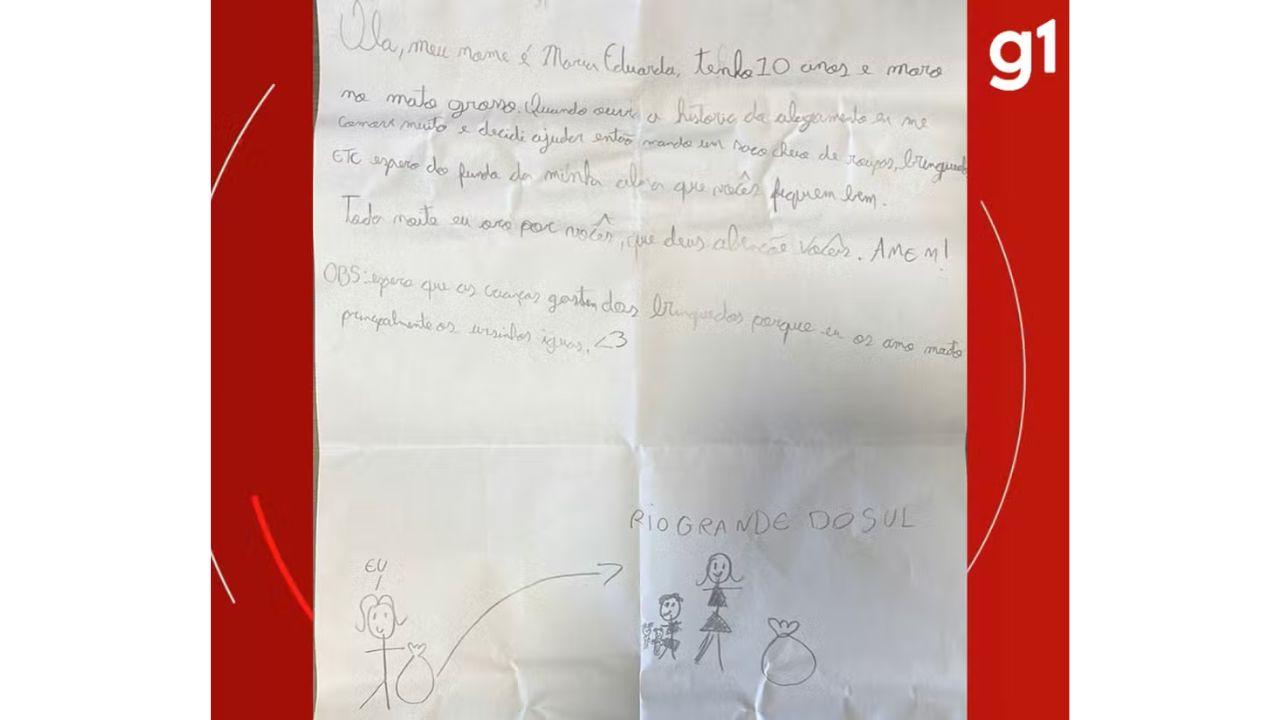 Ola, meu nome é Maria Eduarda, tenho 10 anos e moro
no mato grosso. Quando ouvi a historia do alagamento eu me
comovi muito e decidi ajudar então mando um saco cheio de roupas, brinquedo
ETC espero do fundo da minha alma que vocês fiquem bem.
Toda noite eu oro por vocês, que deus abençõe vocês. AMEM!
OBS: espero que as crianças gostem dos brinquedos porque eu os amo muito
principalmente os ursinhos iguas. <3
RIO GRANDE DO SUL
EU
g1